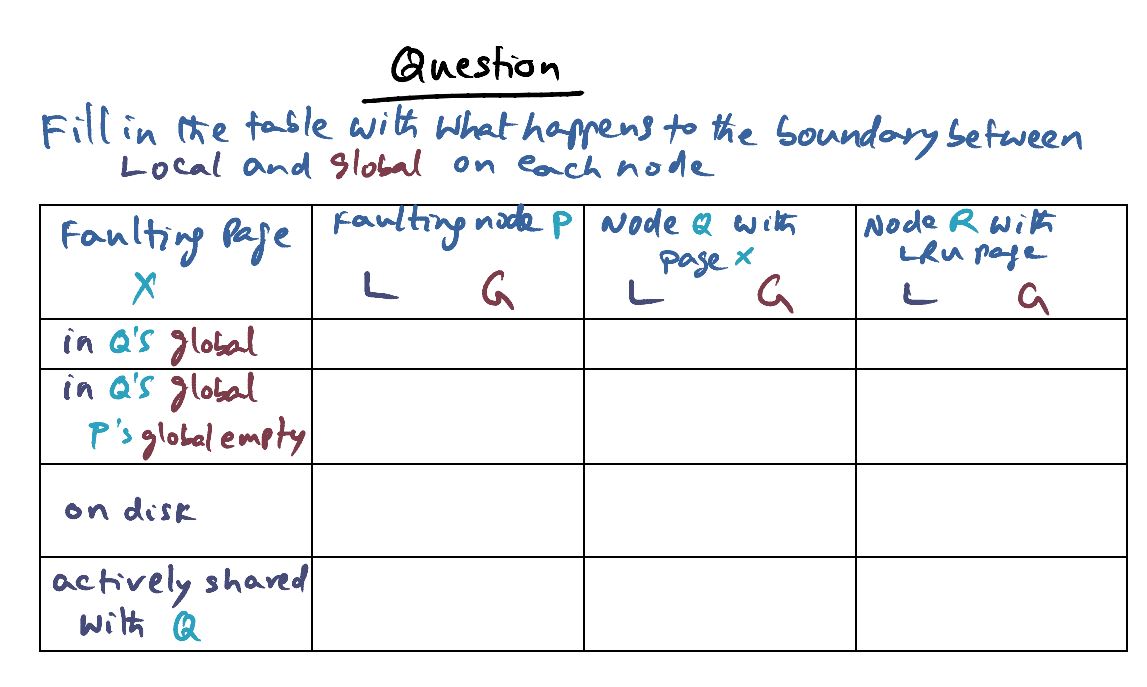 Question
Fill in the table with what happens to the boundary between
Local and global on each node
Faulting Page
X
Faulting node P
L G
Node Q with
page X
L G
Node R with
LRU page
L G
in Q's global
in Q's global
P's global empty
on disk
actively shared
with Q